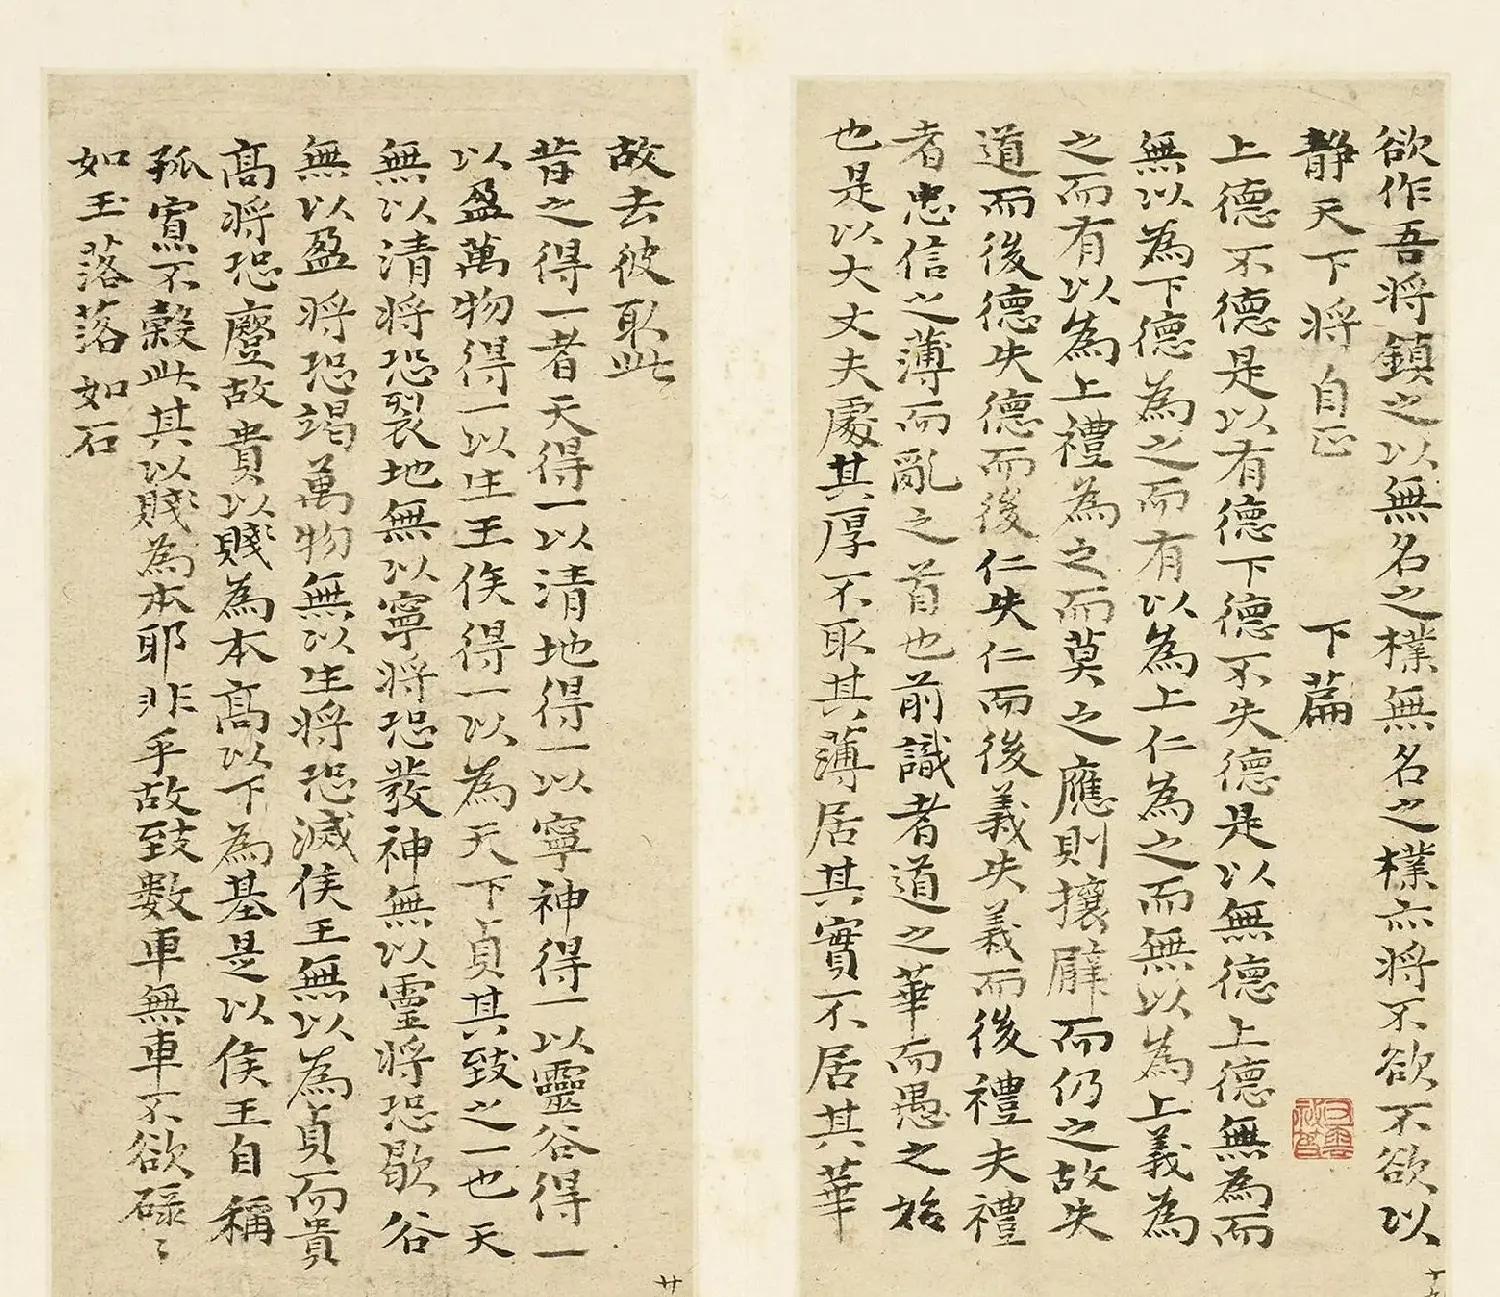 欲作吾将鎮之以無名之樸無名之樸亦将不欲不欲以
静天下将自正　下篇
上德不德是以有德下德不失德是以無德上德無為而
無以為下德為之而有以為上仁為之而無以為上義為
之而有以為上禮為之而莫之應則攘臂而仍之故失
道而後德失德而後仁失仁而後義失義而後禮夫禮
者忠信之薄而亂之首也前識者道之華而愚之始
也是以大丈夫處其厚不取其薄居其實不居其華
故去彼取此
昔之得一者天得一以清地得一以寧神得一以靈谷得一
以盈萬物得一以生王侯得一以為天下貞其致之一也天
無以清将恐裂地無以寧将恐發神無以靈将恐歇谷
無以盈将恐竭萬物無以生将恐滅侯王無以為貞而貴
髙将恐蹷故貴以賤為本髙以下為基是以侯王自稱
孤寡不穀此其以賤為本耶非乎故致數車無車不欲碌〻
如玉落落如石
廿